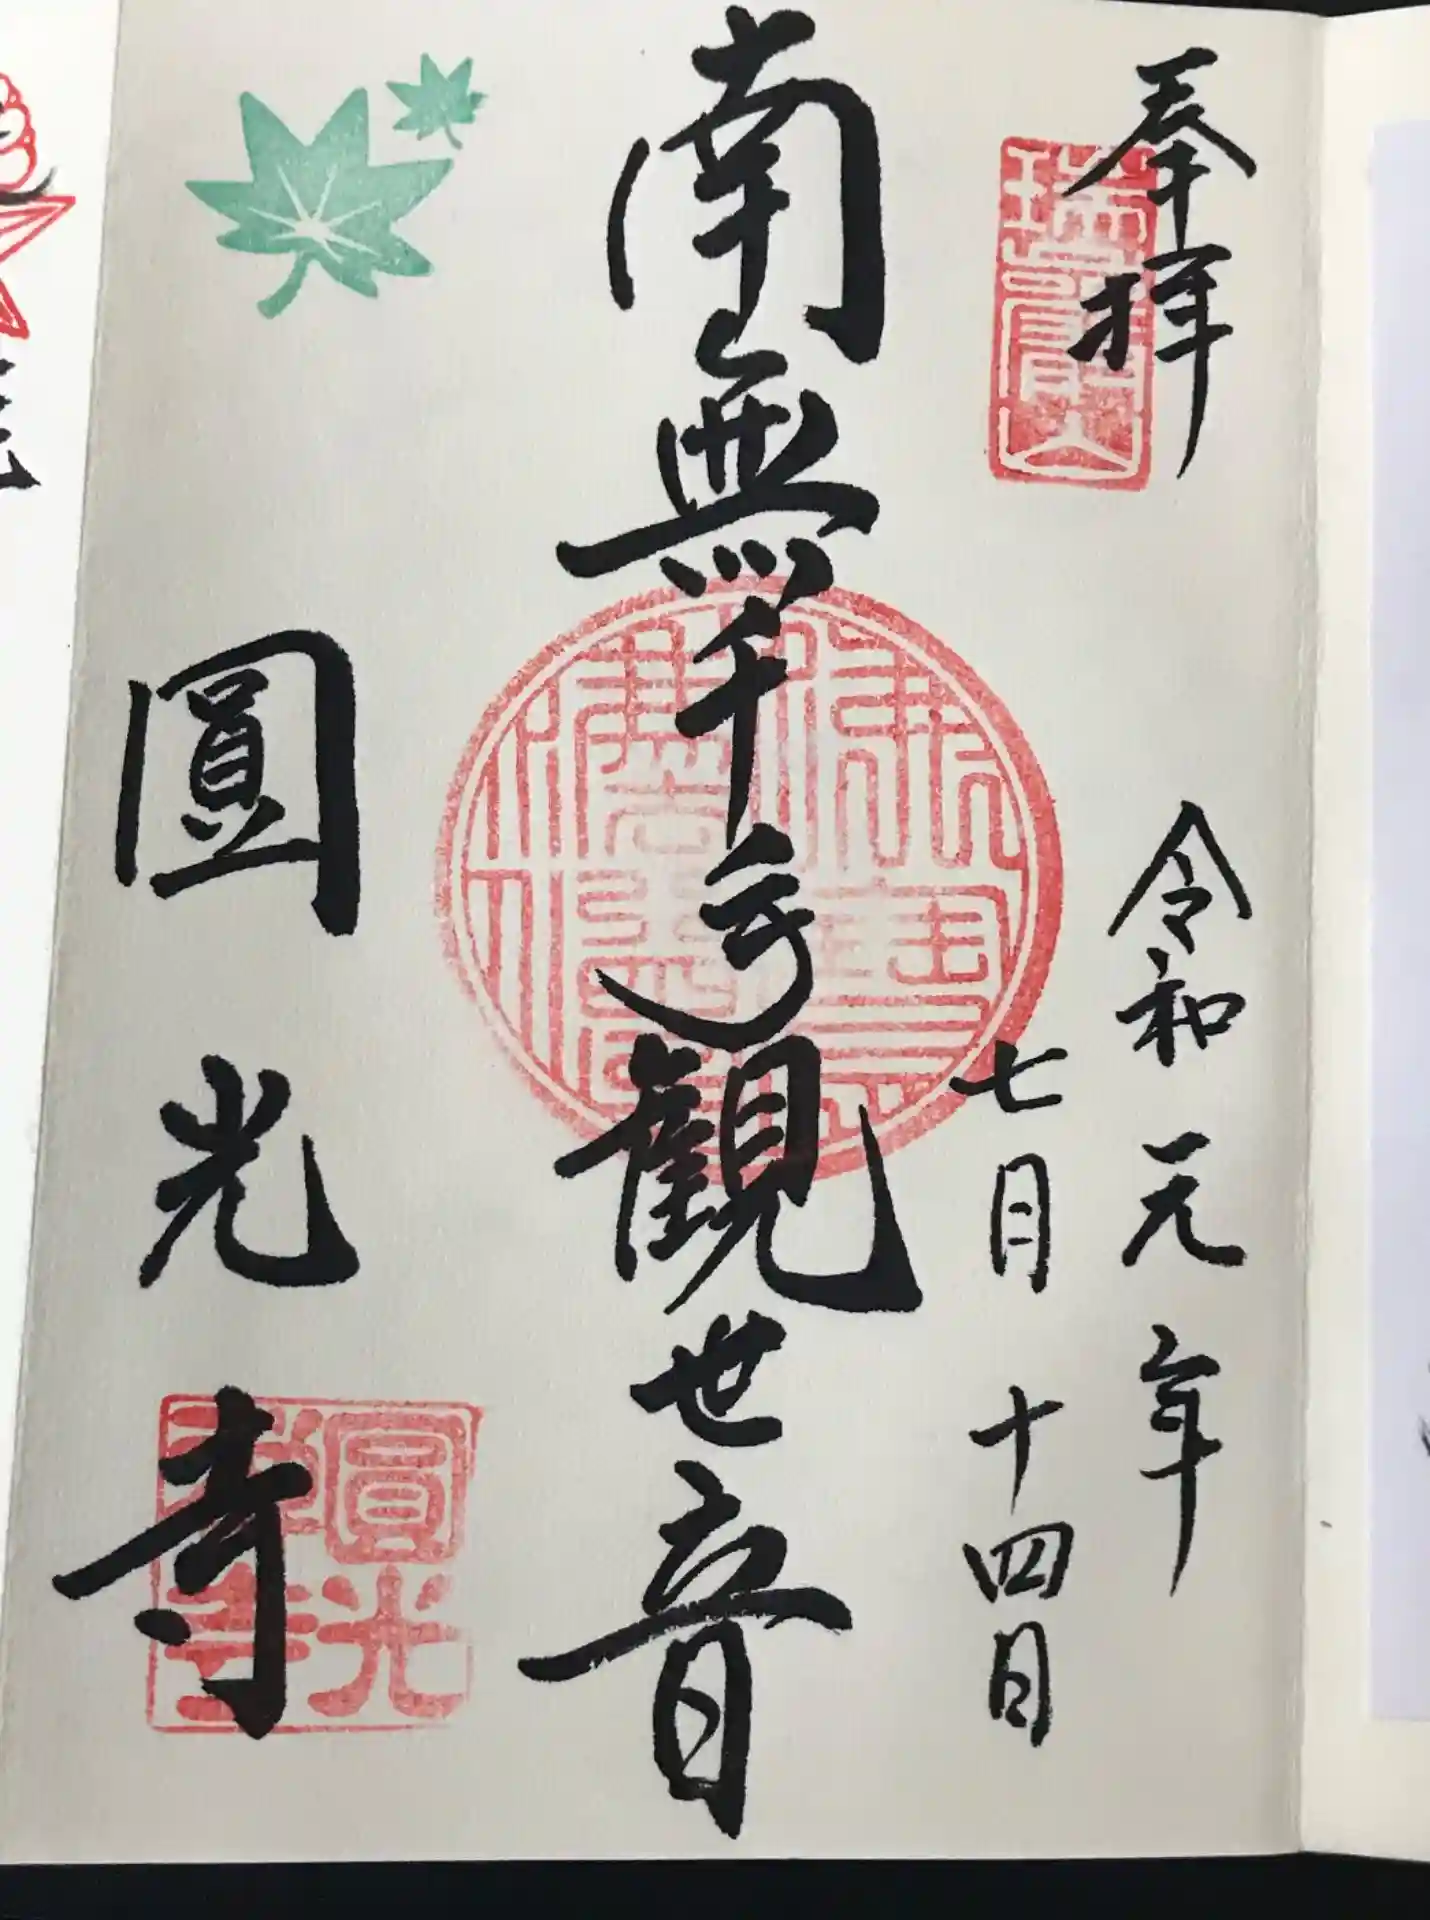 奉拝
令和元年
七月十四日
南無千手観世音
圓光寺
瑞巌山
圓光寺